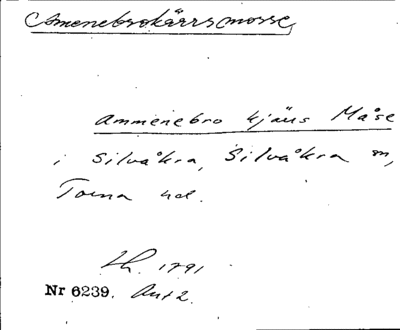 Amenebrokärrsmosse
Ammenebro kjäus Måse
i Silvåkra, Silvåkra sn,
Torna hd.
Lh. 1791
Nr 6239. Akt 2.